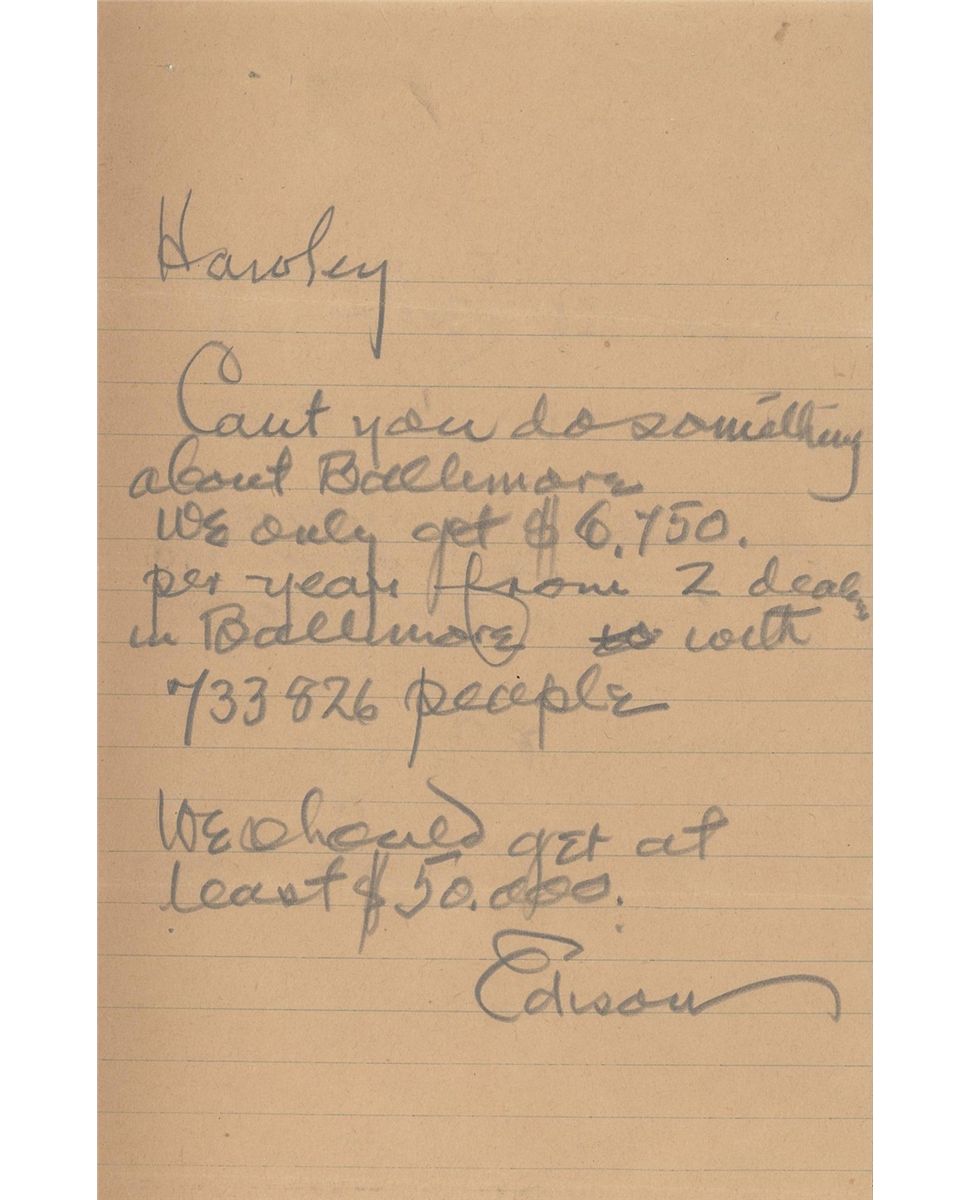 Hawley
Cant you do something
about Baltimore
We only get $6,750.
per year from 2 dealers
in Baltimore to with
733826 people
We should get at
least $50.000.
Edison